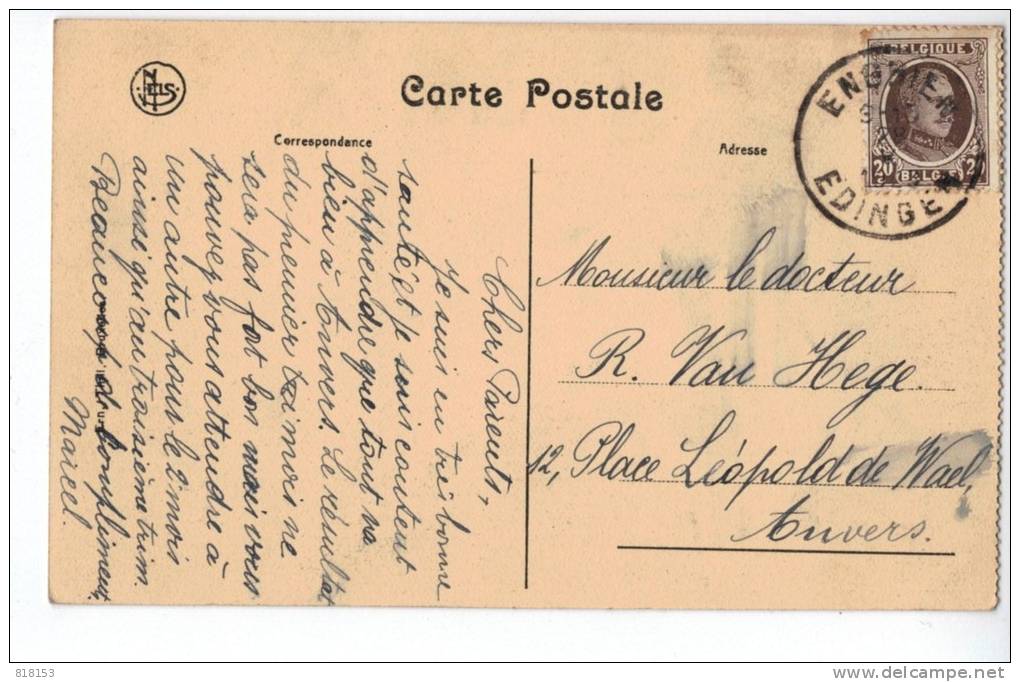 Carte Postale
Correspondance
Adresse
NELS
BELGIQUE
20 c
BELGIË
ENGHIEN
EDINGEN
Monsieur le docteur
R. Van Hege.
12, Place Léopold de Wael,
Anvers.
Chers Parents,
Je suis en très bonne
santé et je suis content
d'apprendre que tout va
bien à Anvers. Le résultat
du premier mois ne
sera pas fort bon mais vous
pouvez vous attendre à
un autre pour le 2 mois
ainsi qu'au troisième trim.
Beaucoup de compliments
Marcel.
818153
delcampe.net